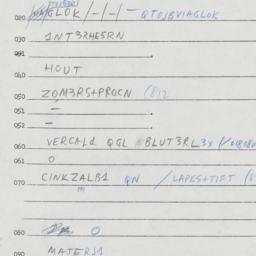 020 GLOK/-/-/- QTOJBVIAGLOK
030 1NT3RHESRN
031 .
040 HOUT
050 ZOM3RS+PROCN (812
051 - .
052 - .
060 VERCAL1 QGL BLUT3RL3X
061 O
070 CINKZALB1 QN /LAPES+TIFT
m
080 O
090 MATERJ1